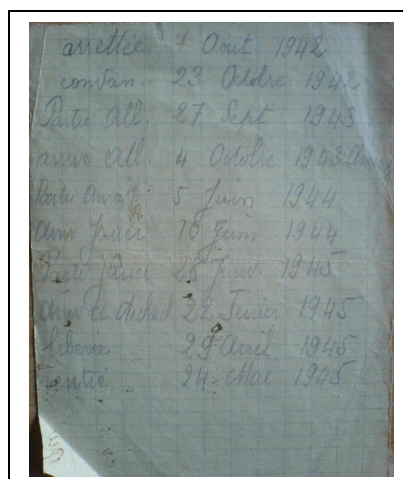 arrettée 7 Aout 1942
condan. 23 Octobre 1942
Partie All. 27 Sept 1943
arrive All. 4 Octobre 1943
Partie 5 Juin 1944
Arriv Jauer 10 Juin 1944
Parti Jauer 28 Janv. 1945
22 Fevrier 1945
liberee 29 Avril 1945
rentré 24 Mai 1945